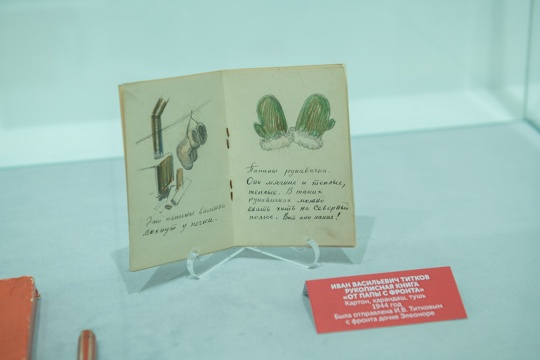 Это папины валенки
сохнут у печки.
Папины рукавички.
Они мягкие и теплые,
теплые. В таких
рукавичках можно
ехать хоть на Северный
полюс. Вот они какие!
ИВАН ВАСИЛЬЕВИЧ ТИТКОВ
РУКОПИСНАЯ КНИГА
«ОТ ПАПЫ С ФРОНТА»
Картон, карандаш, тушь
1944 год
Была отправлена И.В. Титковым
с фронта дочке Элеоноре